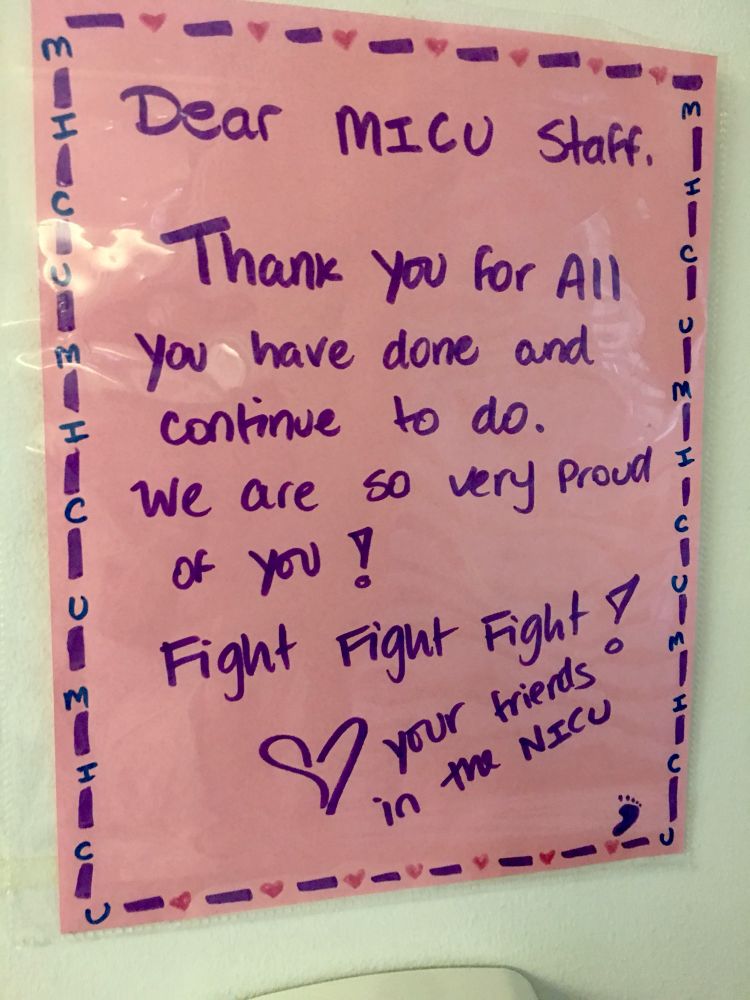 Dear MICU Staff.
Thank you for All
you have done and
continue to do.
We are so very Proud
of you!
Fight Fight Fight!
your friends
in the NICU
M I C U M I C U M I C U
M I C U M I C U M I C U